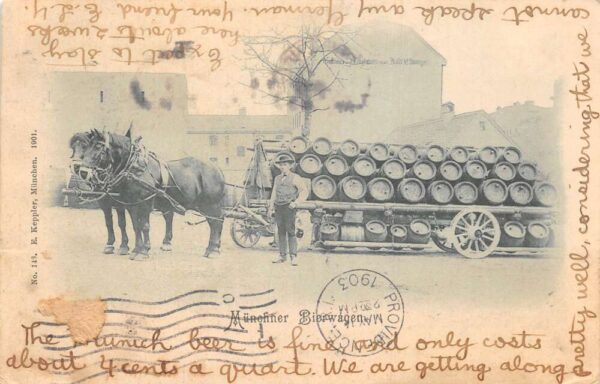 The Munich beer is fine and only costs
about 4 cents a quart. We are getting along
pretty well, considering that we
cannot speak any German. Your friend E. L. Y.
Expect to stay
here about 2 weeks
No. 144. E. Keppler, München. 1901.
Münchner Bierwagen
PROVIDENCE
1903